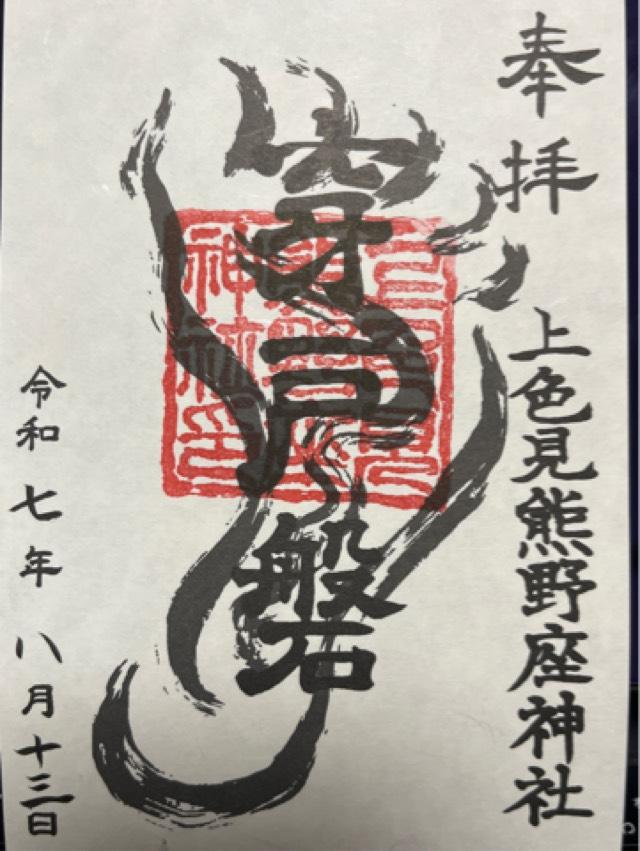 奉拝
上色見熊野座神社
穿戸磐
令和七年八月十三日